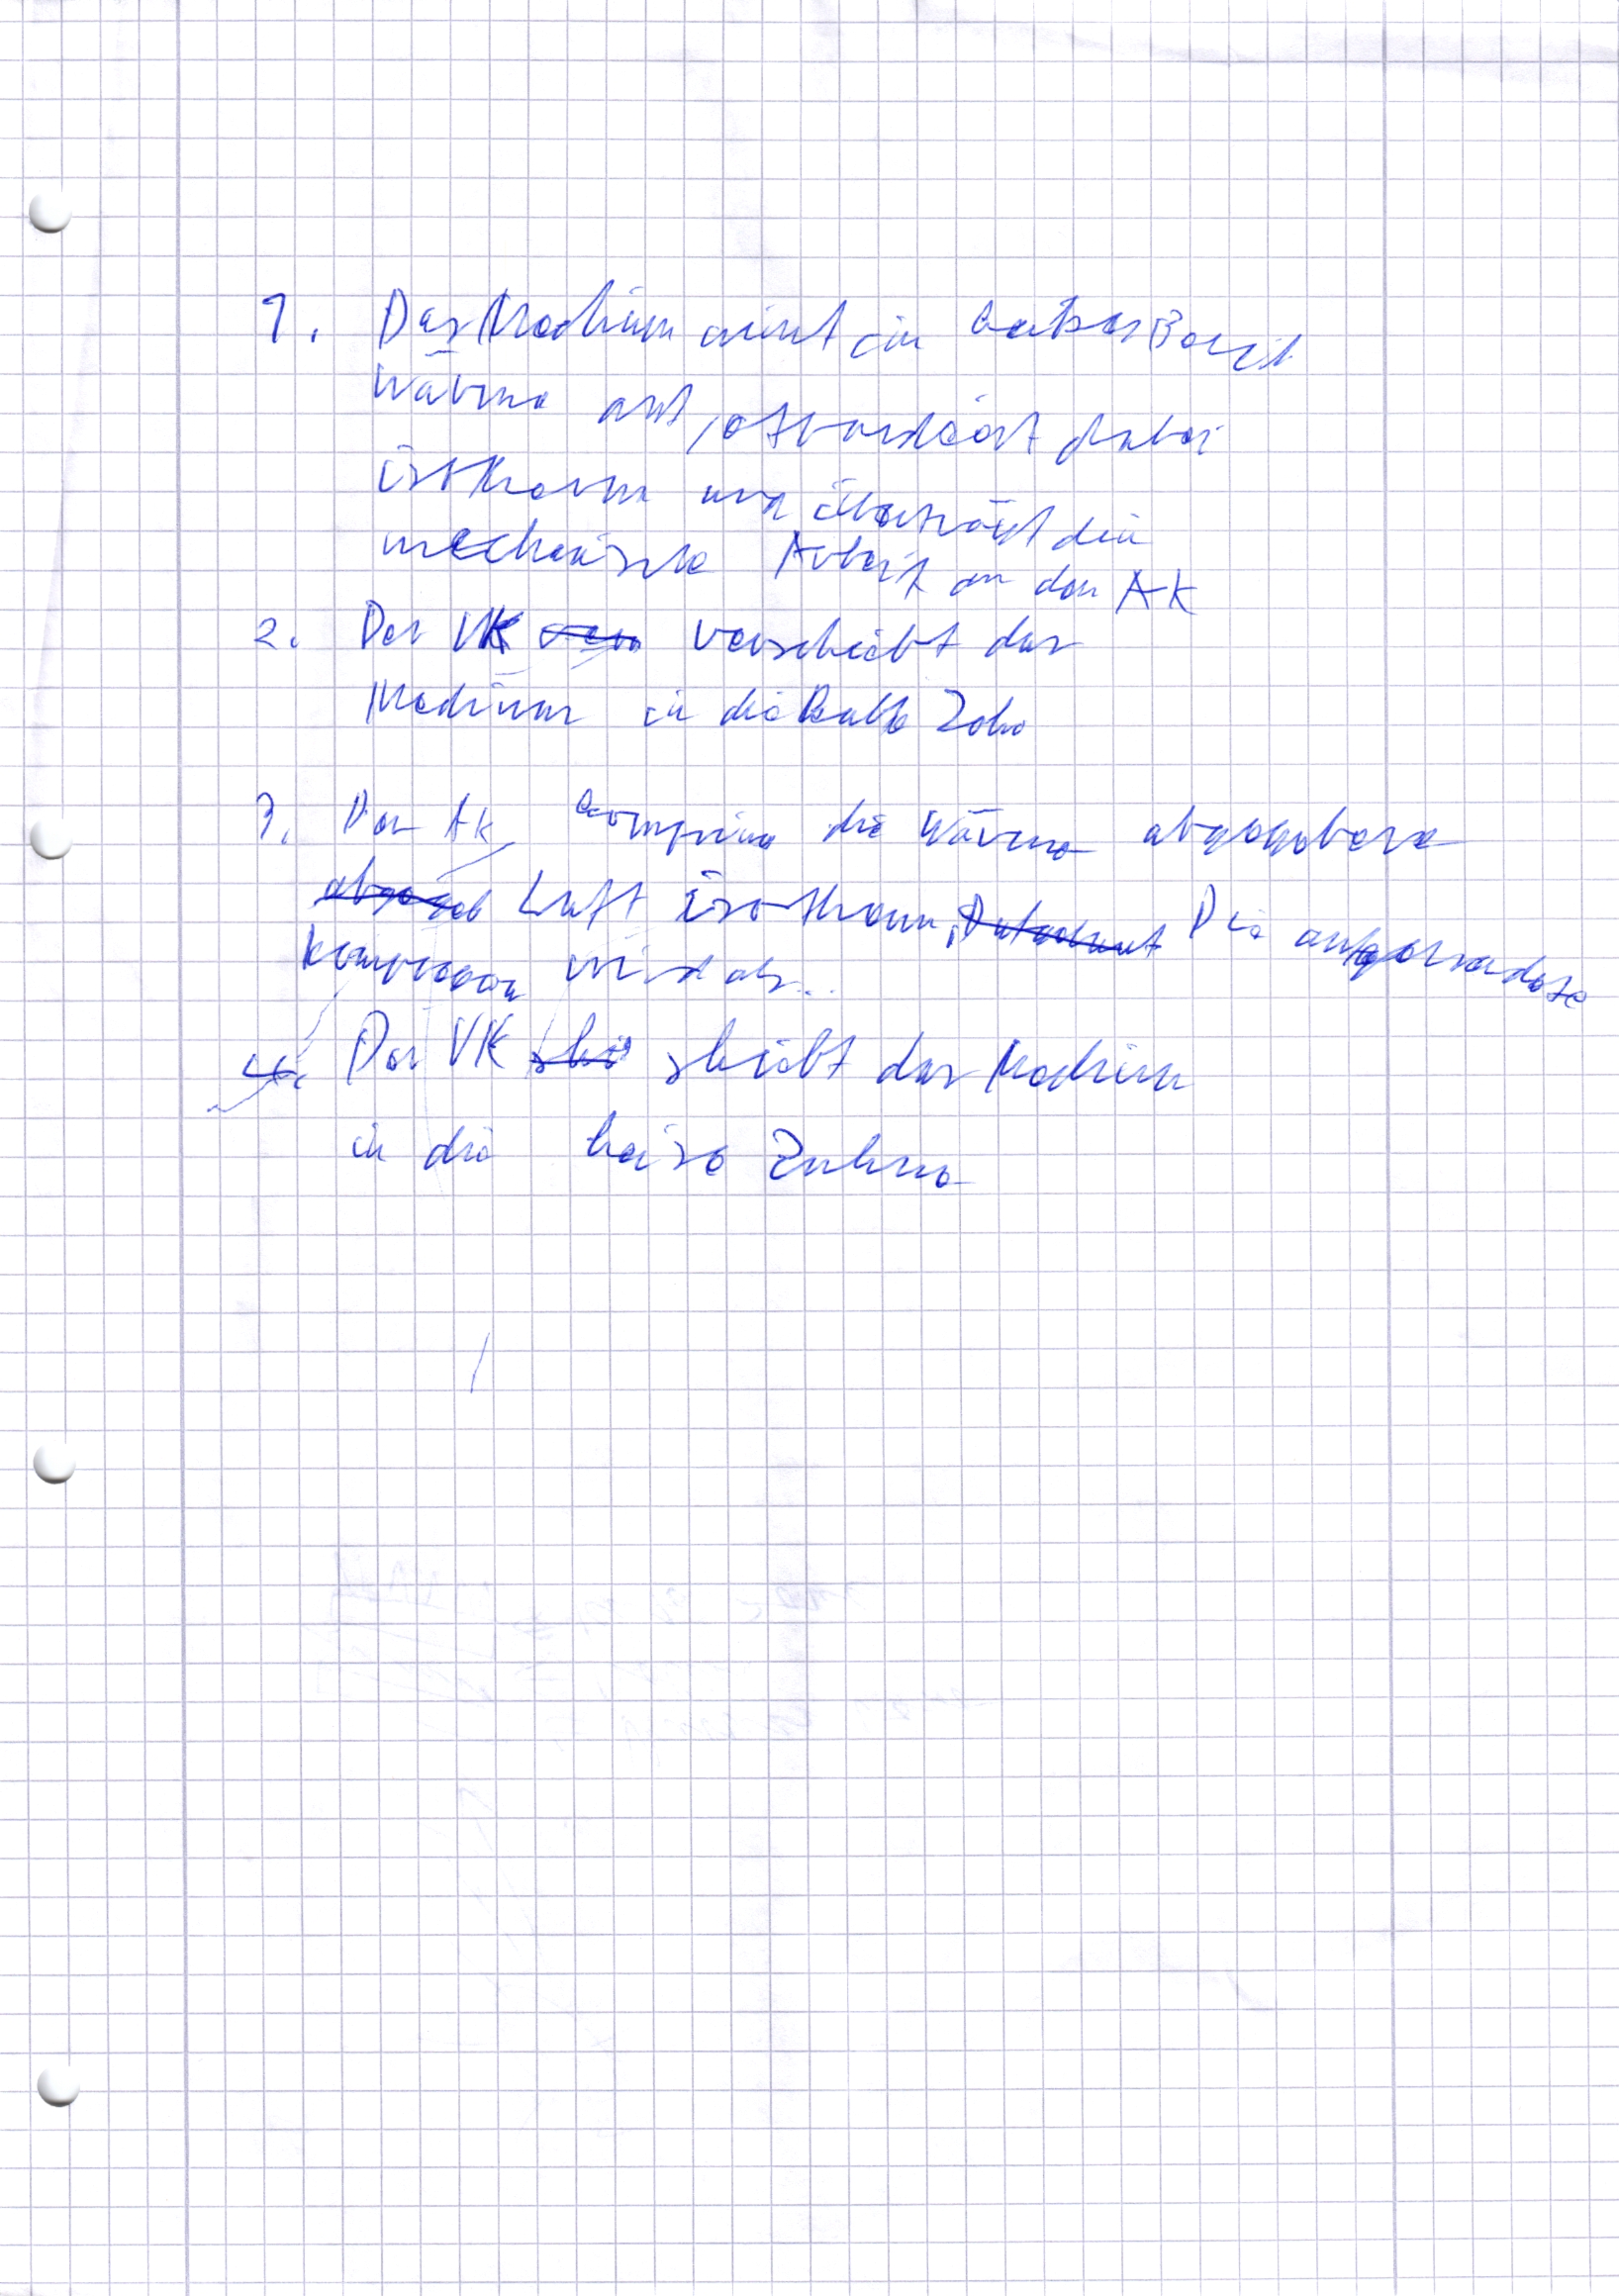 1. Das Medium nimt im Bereich
Wärme auf, expandiert dabei
isotherm und überträgt die
mechanische Arbeit an den AK
2. Der VK verschiebt das
Medium in die kalte Zone
3. Der AK die Wärme abgegebene
Luft isotherm, Die aufgewendete
wird als...
4. Der VK schiebt das Medium
in die heise